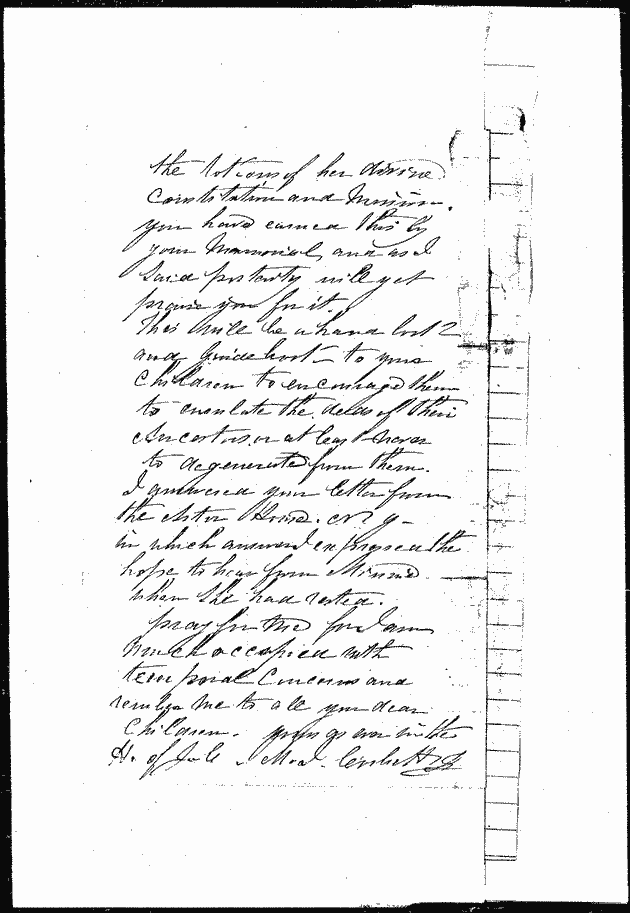 the notions of her divine
Constitution and Mission.
you have earned this by
your Memorial, and as I
said posterity will yet
praise you for it.
This will be a hand book
and Guide book to your
Children to encourage them
to emulate the deeds of their
Ancestors or at least never
to degenerate from them.
I answered your letter from
the Astor House. N Y -
in which answer I expressed the
hope to hear from Minnie
when she had rested.
pray for me for I am
much occupied with
temporal Concerns and
remember me to all your dear
Children. yours ever in the
H. of J. &